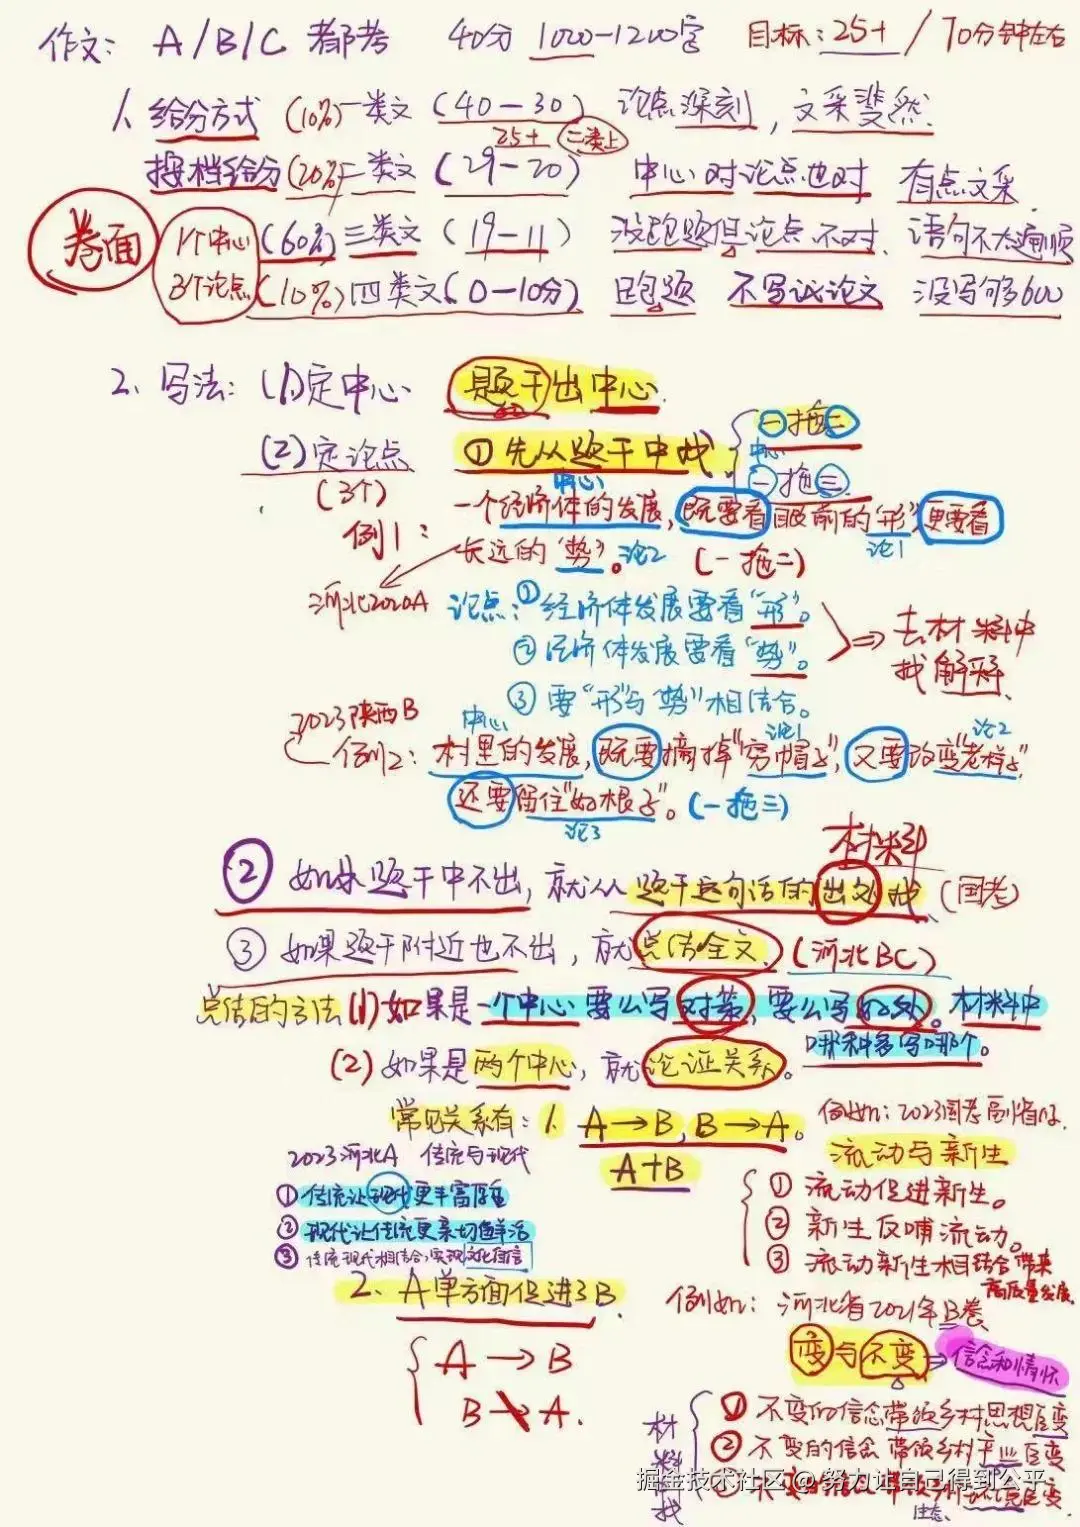 作文: A/B/C 都考 40分 1000-1200字 目标: 25+ / 70分钟左右
1. 给分方式 (10%)一类文 (40-30) 论点深刻, 文采斐然.
25+ 二类上
按档给分 (20%)二类文 (29-20) 中心对论点也对 有点文采.
卷面 1个中心 (60%)三类文 (19-11) 没跑题但论点不对, 语句不太通顺
3个论点 (10%)四类文(0-10分) 跑题 不写议论文 没写够600
2、写法: (1)定中心 题干出中心.
(2)定论点 ①先从题干中找 一拖二
(3个) 中心 一拖三
中心
例1: 一个经济体的发展, 既要看眼前的"形", 更要看
长远的"势"。论2 (一拖二) 论1
河北2020A 论点: ①经济体发展要看"形"。
②经济体发展要看"势"。 ⇒ 去材料中
找解释.
③要"形"与"势"相结合。
2023陕西B 中心 论1 论2
例2: 村里的发展, 既要摘掉"穷帽子", 又要改变"老样子"
还要留住"好根子"。(一拖三)
论3
材料
② 如果题干中不出, 就从题干这句话的出处找 (国考)
③ 如果题干附近也不出, 就总结全文. (河北BC)
总结的方法 (1)如果是一个中心要么写对策, 要么写好处。材料中
哪种多写哪个。
(2)如果是两个中心, 就论证关系。
常见关系有: 1. A→B, B→A。 例如: 2023国考副省级.
A+B 流动与新生
2023河北A 传统与现代
①传统让现代更丰富厚重 ①流动促进新生。
②现代让传统更亲切鲜活 ②新生反哺流动。
③传统现代相结合,实现文化自信 ③流动新生相结合带来
高质量发展.
2、A单方面促进了B. 例如: 河北省2021年B卷
变与不变 ⇒ 信念和情怀
A → B
B ↛ A.
材料找 ①不变的信念带领乡村思想巨变
②不变的信念带领乡村产业巨变
生态.
掘金技术社区 @ 努力让自己得到公平